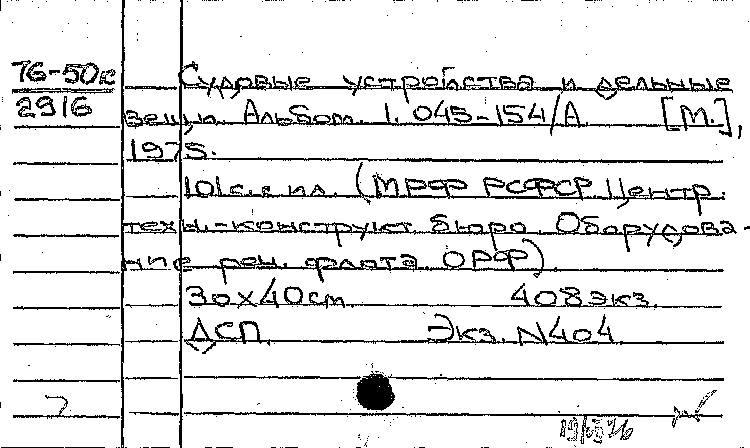 76-50к
2916
Судовые устройства и дельные
вещи. Альбом. 1. 045-154/А. [М.],
1975.
101с. с ил. (МРФ РСФСР. Центр.
техн.-конструкт. бюро. Оборудова-
ние реч. флота. ОРФ)
30х40см. 408экз.
ДСП. Экз. N404.